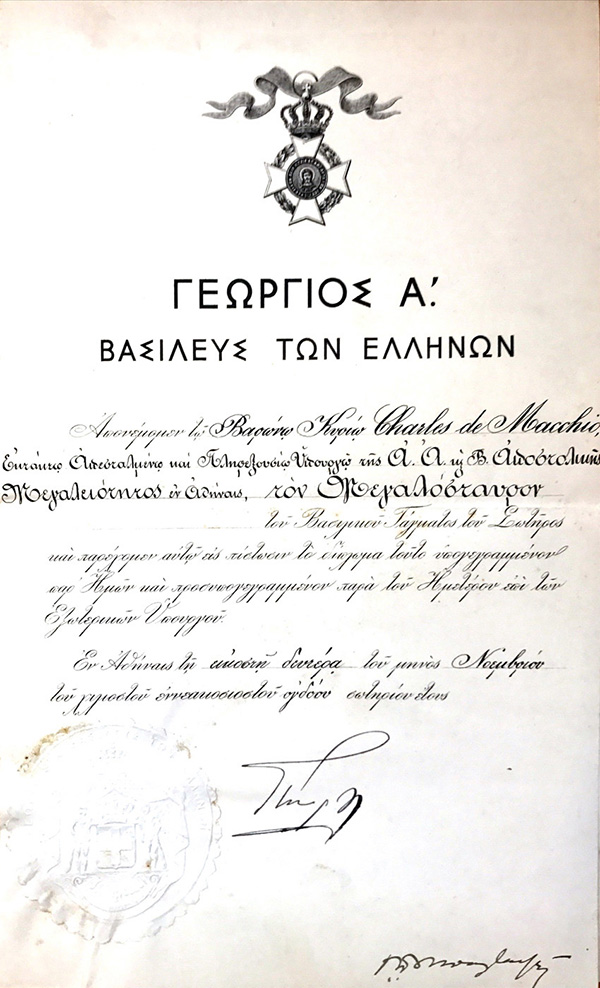 ΓΕΩΡΓΙΟΣ Α΄.
ΒΑΣΙΛΕΥΣ ΤΩΝ ΕΛΛΗΝΩΝ
Ἀπονέμομεν τῷ Βαρώνῳ Κυρίῳ Charles de Macchio,
Ἐκτάκτῳ Ἀπεσταλμένῳ καὶ Πληρεξουσίῳ Ὑπουργῷ τῆς Α. Α. κὴ Β. Ἀποστολικῆς
Μεγαλειότητος ἐν Ἀθήναις, τὸν Μεγαλόσταυρον
τοῦ Βασιλικοῦ Τάγματος τοῦ Σωτῆρος
καὶ παρέχομεν αὐτῷ εἰς πίστωσιν τὸ δίπλωμα τοῦτο ὑπογεγραμμένον
παρ' Ἡμῶν καὶ προσυπογεγραμμένον παρὰ τοῦ Ἡμετέρου ἐπὶ τῶν
Ἐξωτερικῶν Ὑπουργοῦ.
Ἐν Ἀθήναις τῇ εἰκοστῇ δευτέρᾳ τοῦ μηνὸς Νοεμβρίου
τοῦ χιλιοστοῦ ἐννεακοσιοστοῦ ὀγδόου σωτηρίου ἔτους